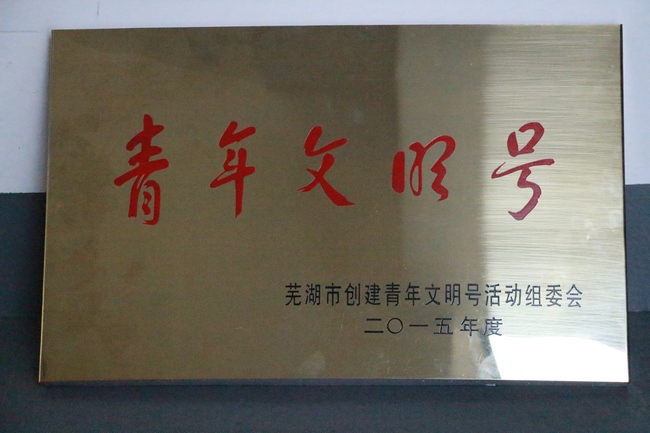 青年文明号
芜湖市创建青年文明号活动组委会
二〇一五年度